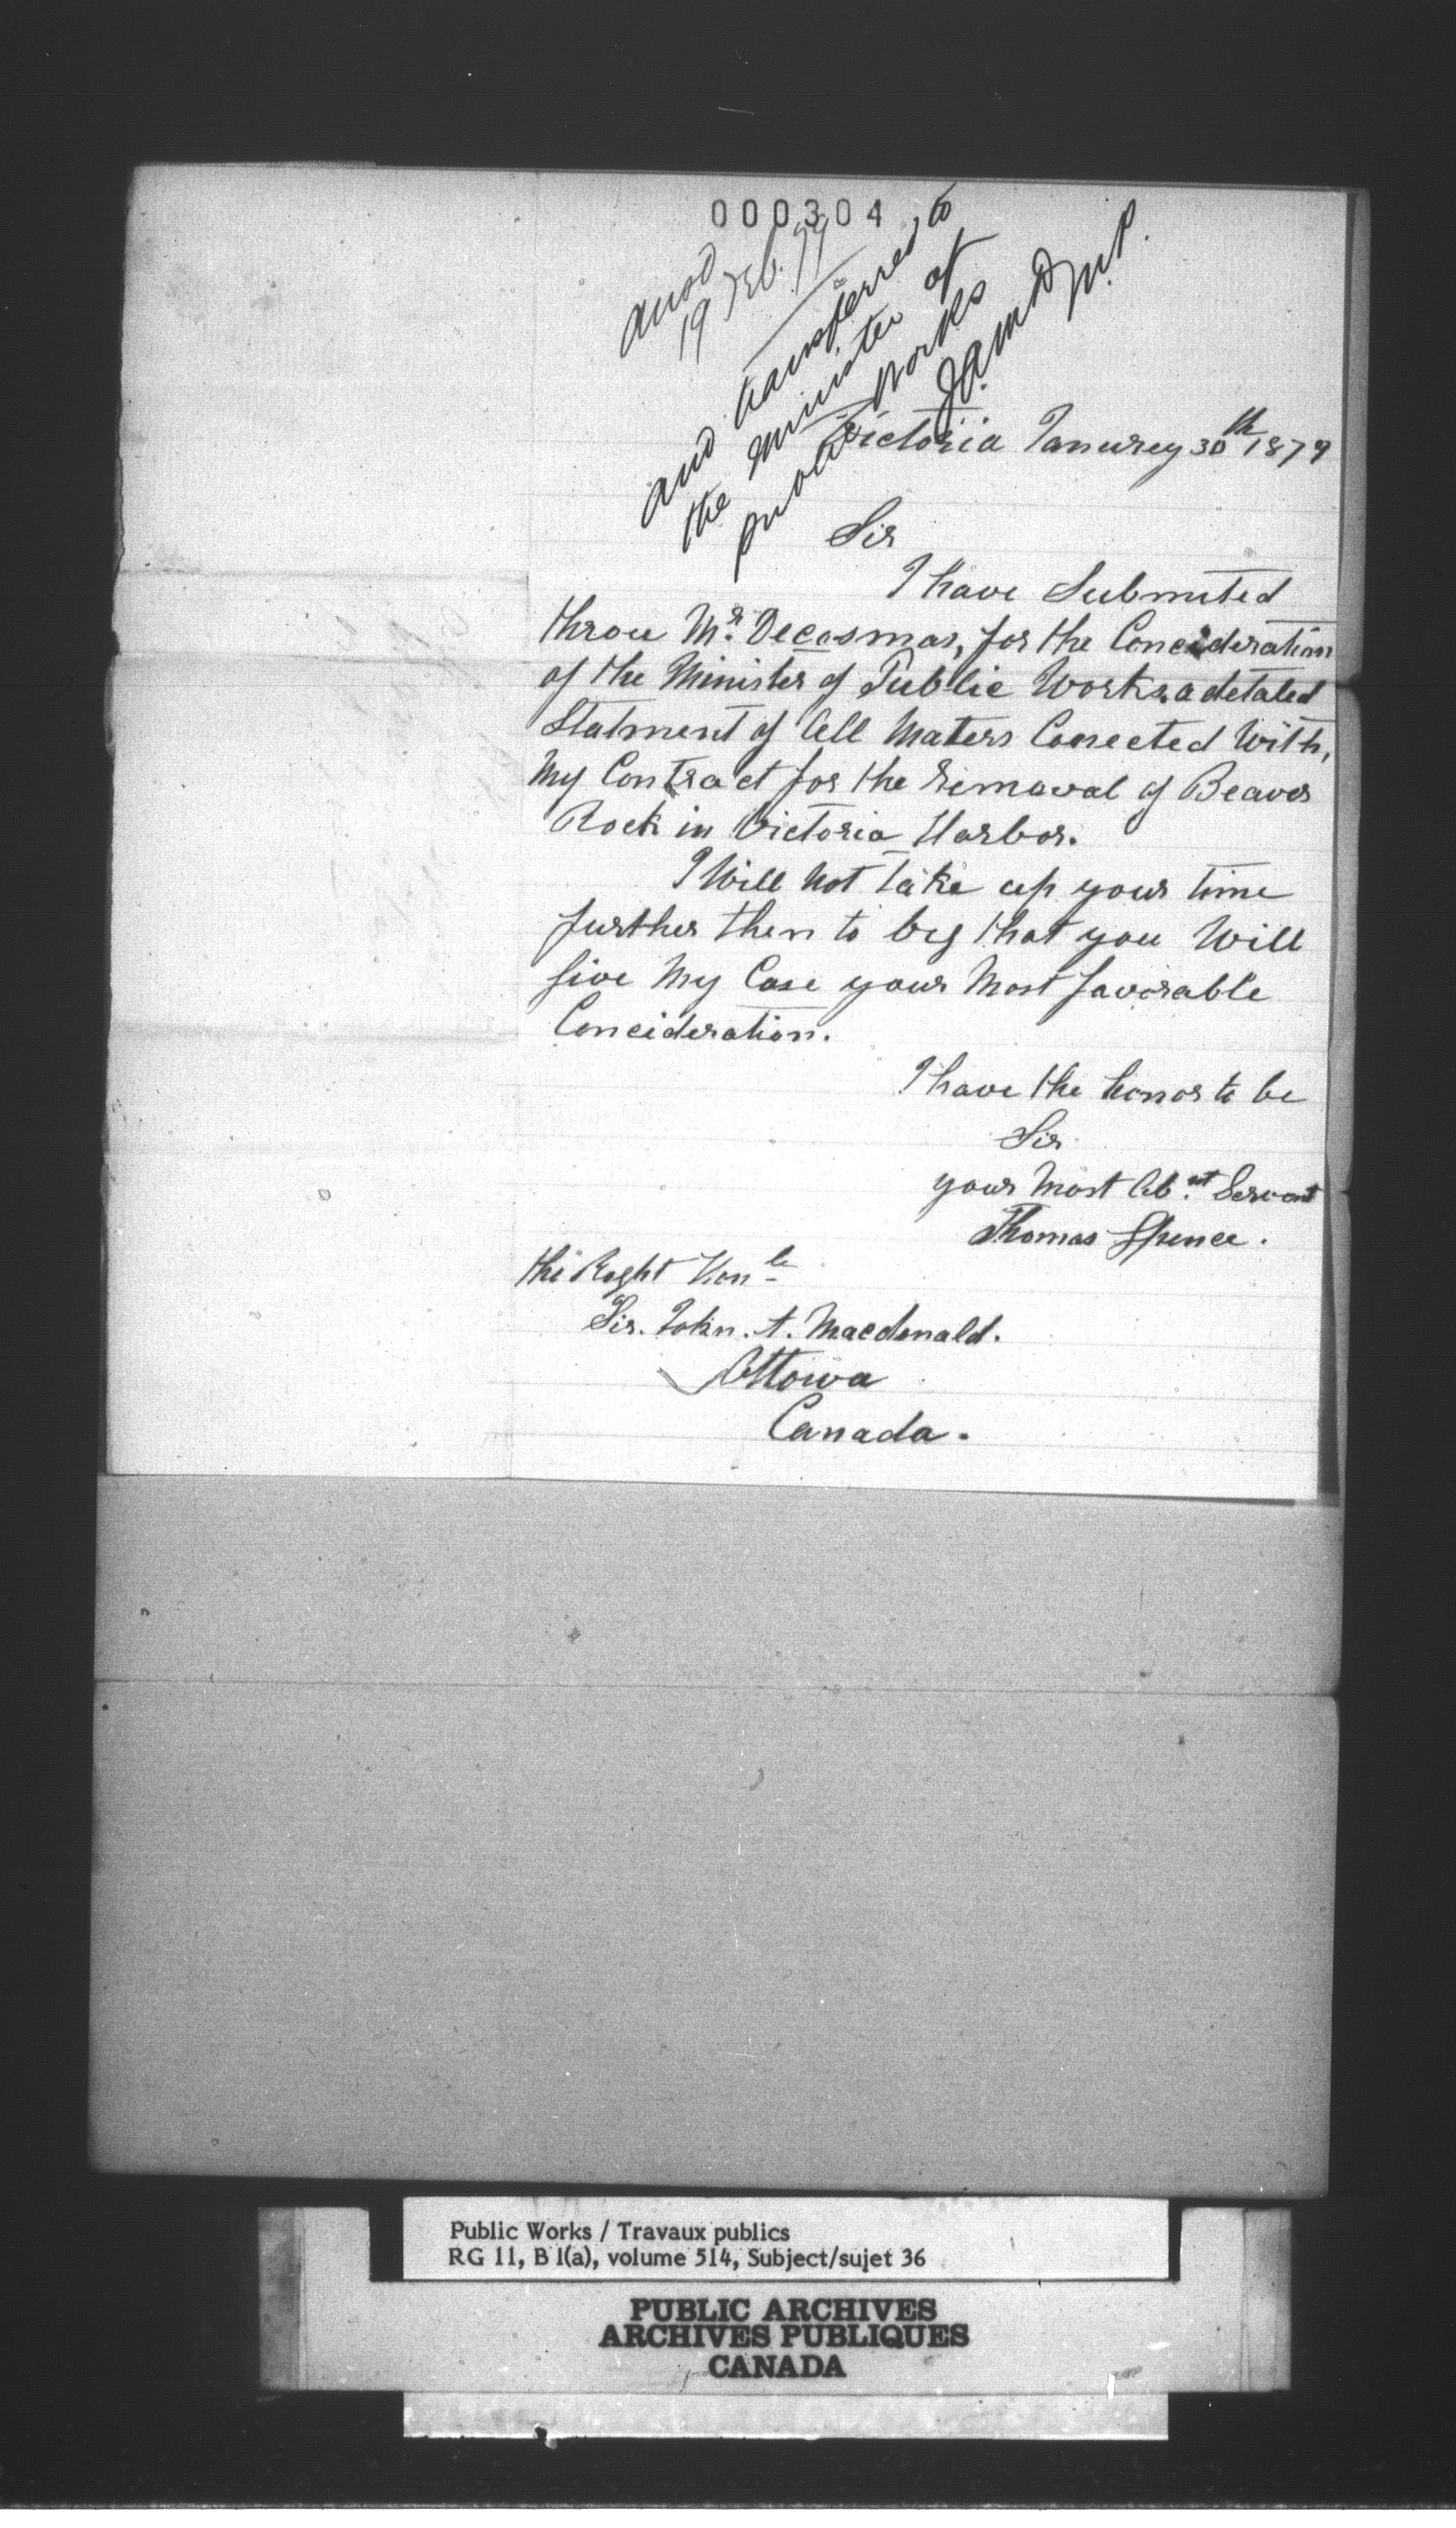 000304
ansd
19 Feb. 79
and transferred to
the Minister of
public Works
JAMD M.P.
Victoria Janurey 30th 1879
Sir
I have Submited
throu Mr. Decosmas, for the Concideration
of the Minister of Public Works, a detaled
Statment of All Maters Conected With,
My Contract for the Removal of Beaver
Rock in Victoria Harbor.
I Will Not Take up your time
further then to beg that you Will
give My Case your Most favorable
Concideration.
I have the honor to be
Sir
your Most Ob.nt Servant
Thomas Spence.
the Right Honle
Sir. John. A. Macdonald.
Ottowa
Canada.
Public Works / Travaux publics
RG 11, B 1(a), volume 514, Subject/sujet 36
PUBLIC ARCHIVES
ARCHIVES PUBLIQUES
CANADA